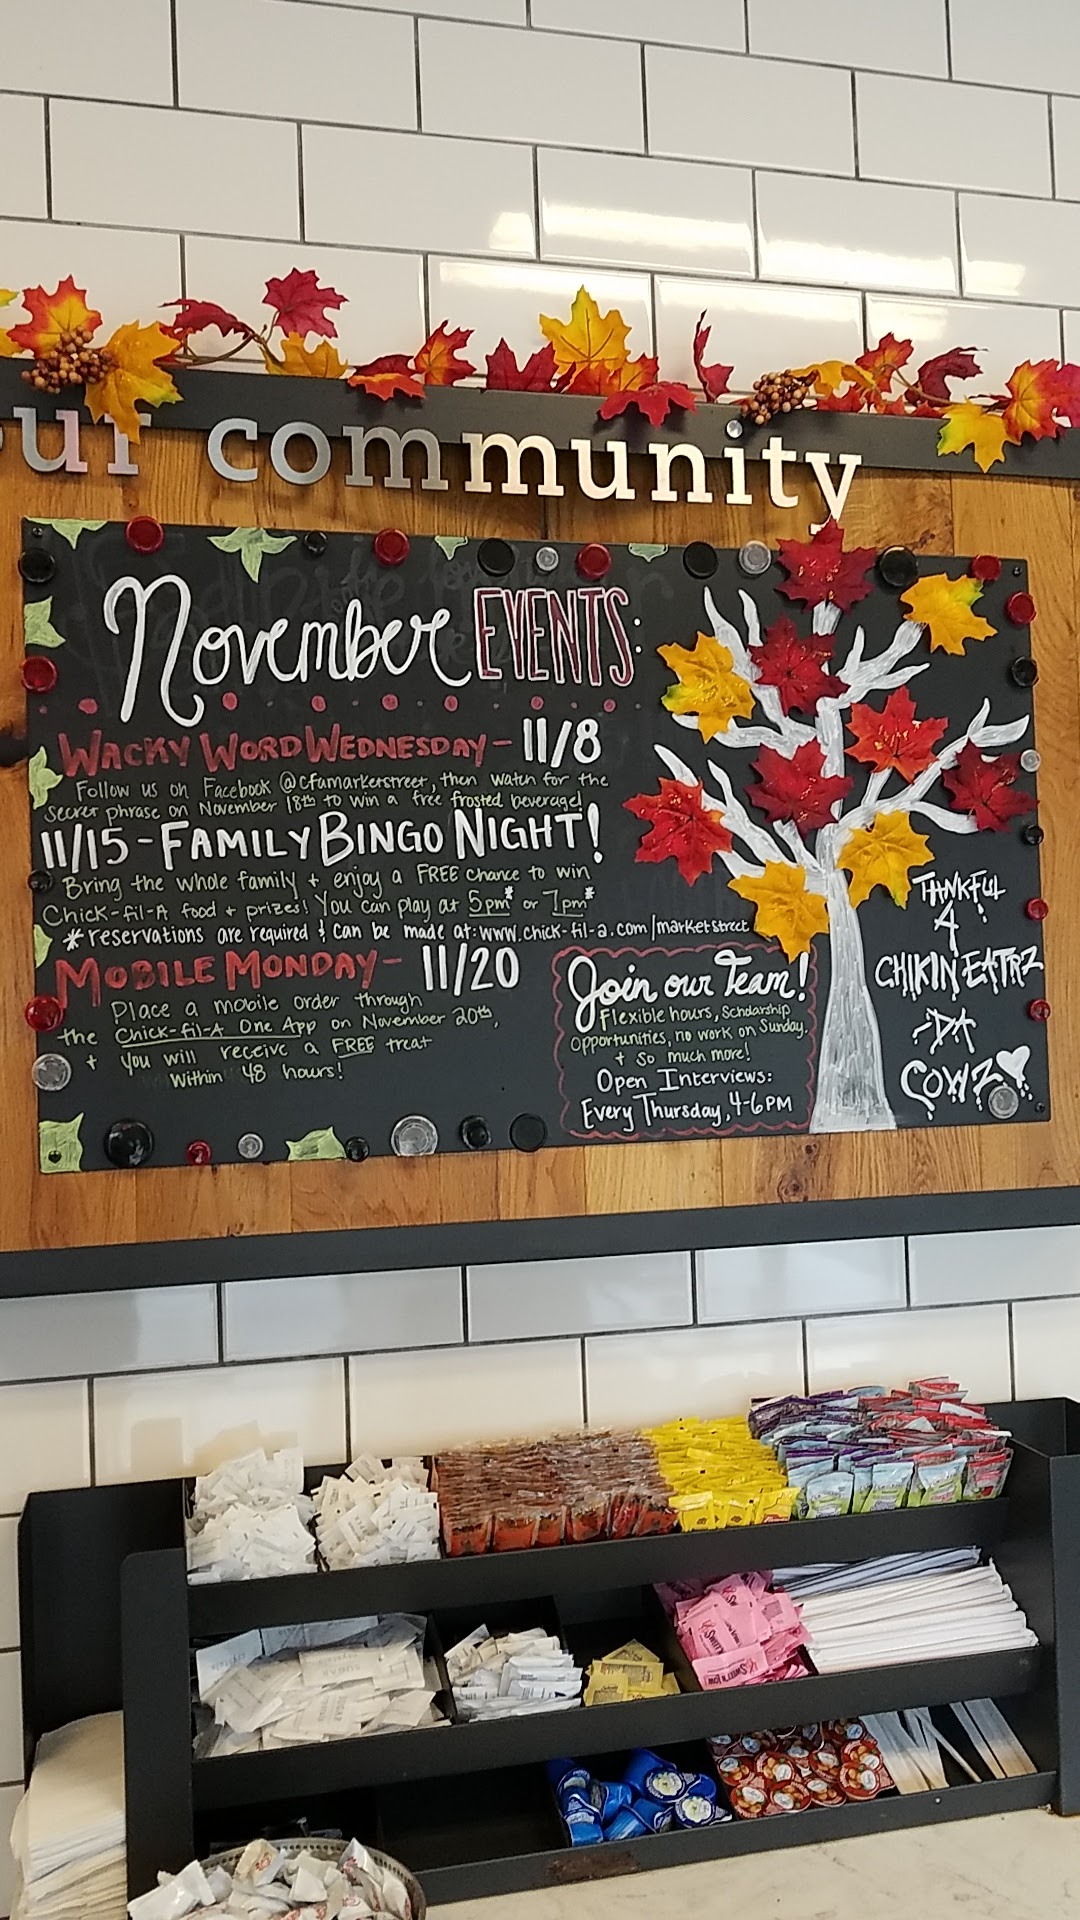 our community
November EVENTS:
WACKY WORD WEDNESDAY - 11/8
Follow us on Facebook @cfamarketstreet, then watch for the
secret phrase on November 18th to win a free frosted beverage!
11/15 - FAMILY BINGO NIGHT!
Bring the whole family + enjoy a FREE chance to win
Chick-fil-A food + prizes! You can play at 5pm* or 7pm*
*reservations are required & can be made at: www.chick-fil-a.com/marketstreet
MOBILE MONDAY - 11/20
Place a mobile order through
the Chick-fil-A One App on November 20th,
+ you will receive a FREE treat
within 48 hours!
Join our Team!
Flexible hours, Scholarship
Opportunities, no work on Sunday,
+ so much more!
Open Interviews:
Every Thursday, 4-6PM
THANKFUL
4
CHIKIN EATRZ
-DA
COWZ
SUGAR